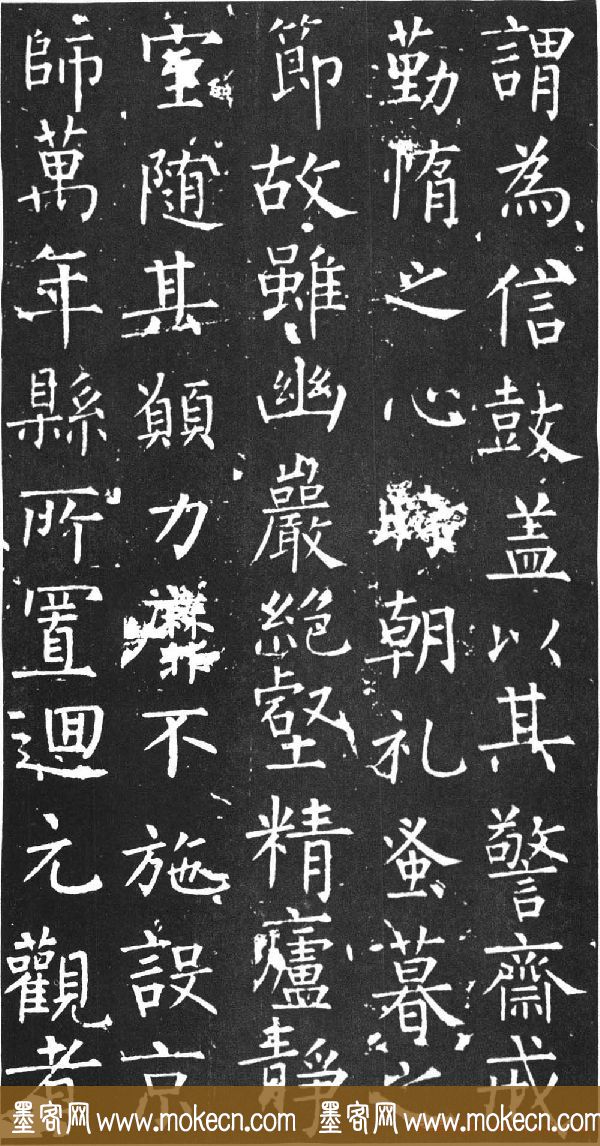 謂為信鼓盖以其警齋戒
勤惰之心時朝礼蚤暮之
節故雖幽巖絕壑精廬靜
室隨其願力靡不施設京
師萬年縣所置迴元觀者
墨客网 www.mokecn.com 墨客网 www.mokecn.com